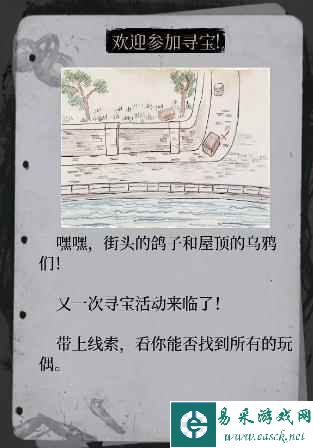 欢迎参加寻宝!
嘿嘿，街头的鸽子和屋顶的乌鸦
们!
又一次寻宝活动来临了!
带上线索，看你能否找到所有的玩
偶。
易采游戏网
www.easck.net